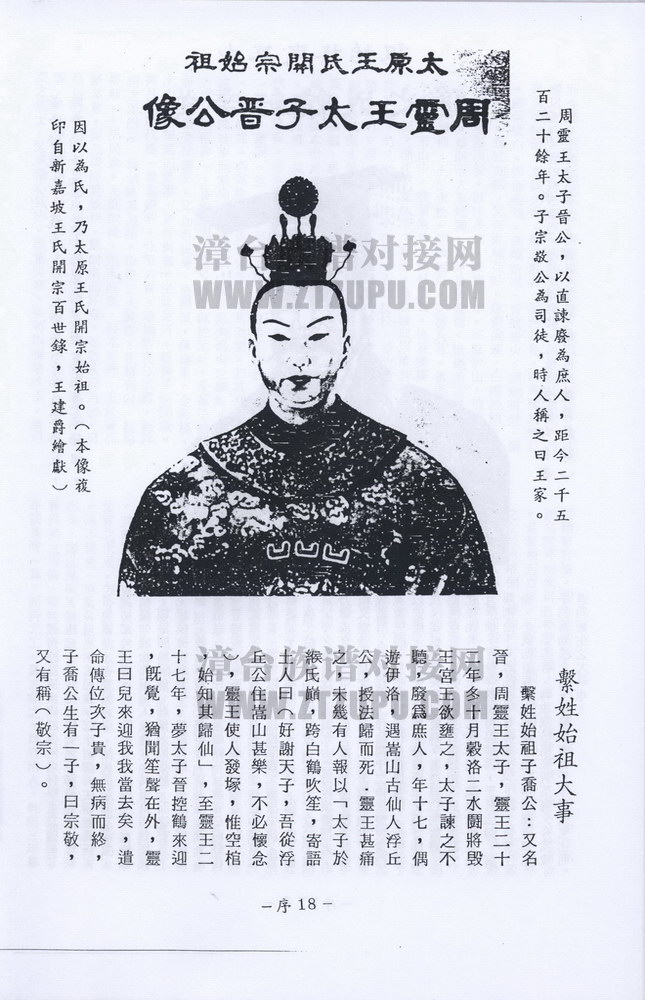 太原王氏開宗始祖
周靈王太子晋公像
周靈王太子晉公，以直諫廢為庶人，距今二千五
百二十餘年。子宗敬公為司徒，時人稱之曰王家。
因以為氏，乃太原王氏開宗始祖。（本像複
印自新嘉坡王氏開宗百世錄，王建爵繪獻）
漳台族谱对接网
WWW.ZTZUPU.COM
繫姓始祖大事
繫姓始祖子喬公：又名
晉，周靈王太子，靈王二十
二年冬十月穀洛二水鬪將毀
王宮王欲壅之，太子諫之不
聽，廢爲庶人，年十七，偶
遊伊洛，遇嵩山古仙人浮丘
公，授法歸而死．靈王甚痛
之，未幾有人報以「太子於
緱氏巔，跨白鶴吹笙，寄語
土人曰（好謝天子，吾從浮
丘公住嵩山甚樂，不必懷念
），靈王使人發塚，惟空棺
，始知其歸仙」，至靈王二
十七年，夢太子晉控鶴來迎
，既覺，猶聞笙聲在外，靈
王曰兒來迎我我當去矣，遺
命傳位次子貴，無病而終，
子喬公生有一子，曰宗敬，
又有稱（敬宗）。
漳台族谱对接网
WWW.ZTZUPU.COM
－序 18－